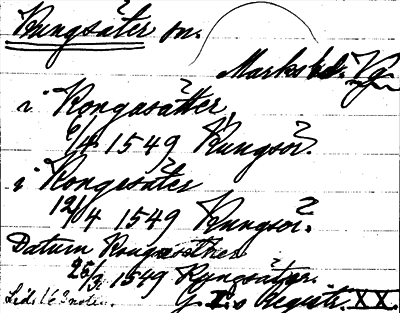 Kungsäter sn.
Marks hd. Vg.
i Kongasätter
6/4 1549 Kungsör.
i Kongesäter
12/4 1549 Kungsör.
Datum Kongesäther
25/3 1549 Kungsäter.
G. I:s Registr. XX.